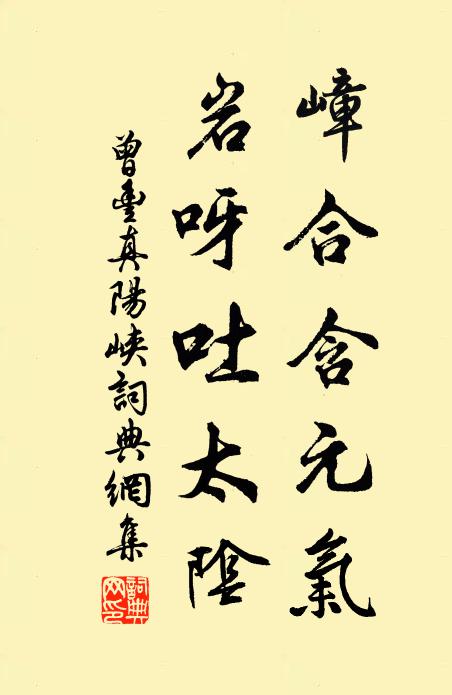 嶂合含元氣
岩呀吐太陰
曾豐真陽峽詞典網集
詞典网印